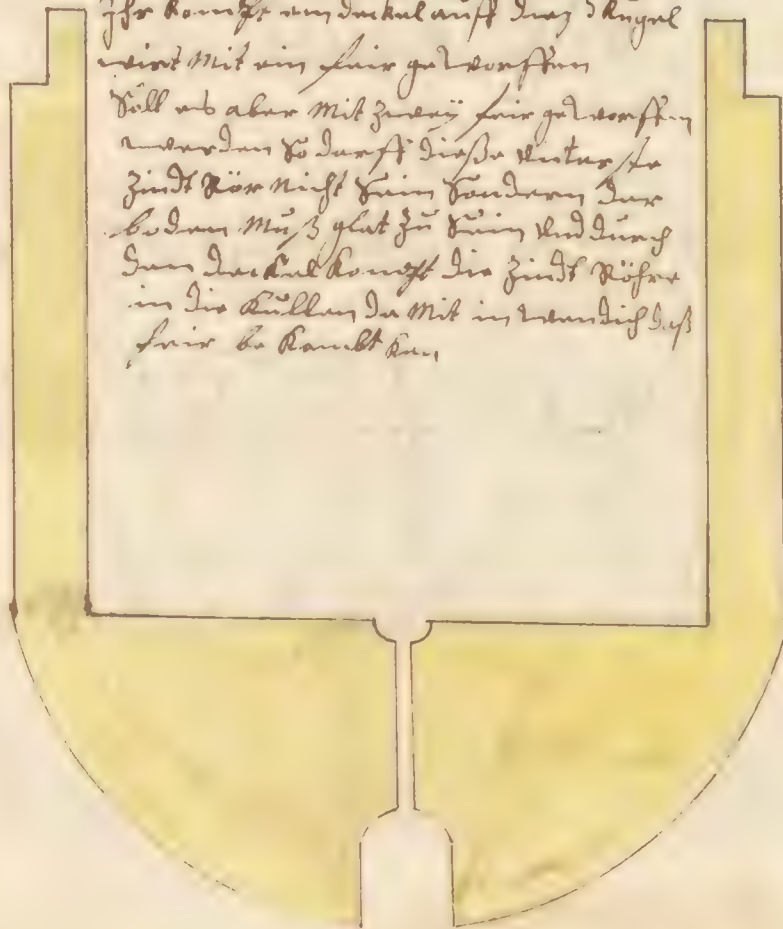 Ihr kompt ein deckel auff dieß d Kugel
wirt Mit ein feir geworffen
Soll es aber Mit zweÿ feir geworffen
werden So darff dieße unterste
Zindt Rör nicht Sein Sondern der
bodem Muß glat zu Sein und durch
den deckel kompt die Zindt Röhre
in die Kullen da Mit inwendich daß
feir be kombt kan